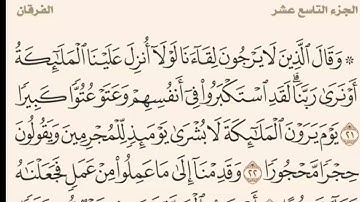 الجزء التاسع عشر الفرقان
۞ وَقَالَ ٱلَّذِينَ لَا يَرْجُونَ لِقَآءَنَا لَوْلَآ أُنزِلَ عَلَيْنَا ٱلْمَلَٰٓئِكَةُ
أَوْ نَرَىٰ رَبَّنَا ۗ لَقَدِ ٱسْتَكْبَرُوا۟ فِىٓ أَنفُسِهِمْ وَعَتَوْ عُتُوًّا كَبِيرًا
٢١ يَوْمَ يَرَوْنَ ٱلْمَلَٰٓئِكَةَ لَا بُشْرَىٰ يَوْمَئِذٍ لِّلْمُجْرِمِينَ وَيَقُولُونَ
حِجْرًا مَّحْجُورًا ٢٢ وَقَدِمْنَآ إِلَىٰ مَا عَمِلُوا۟ مِنْ عَمَلٍ فَجَعَلْنَٰهُ